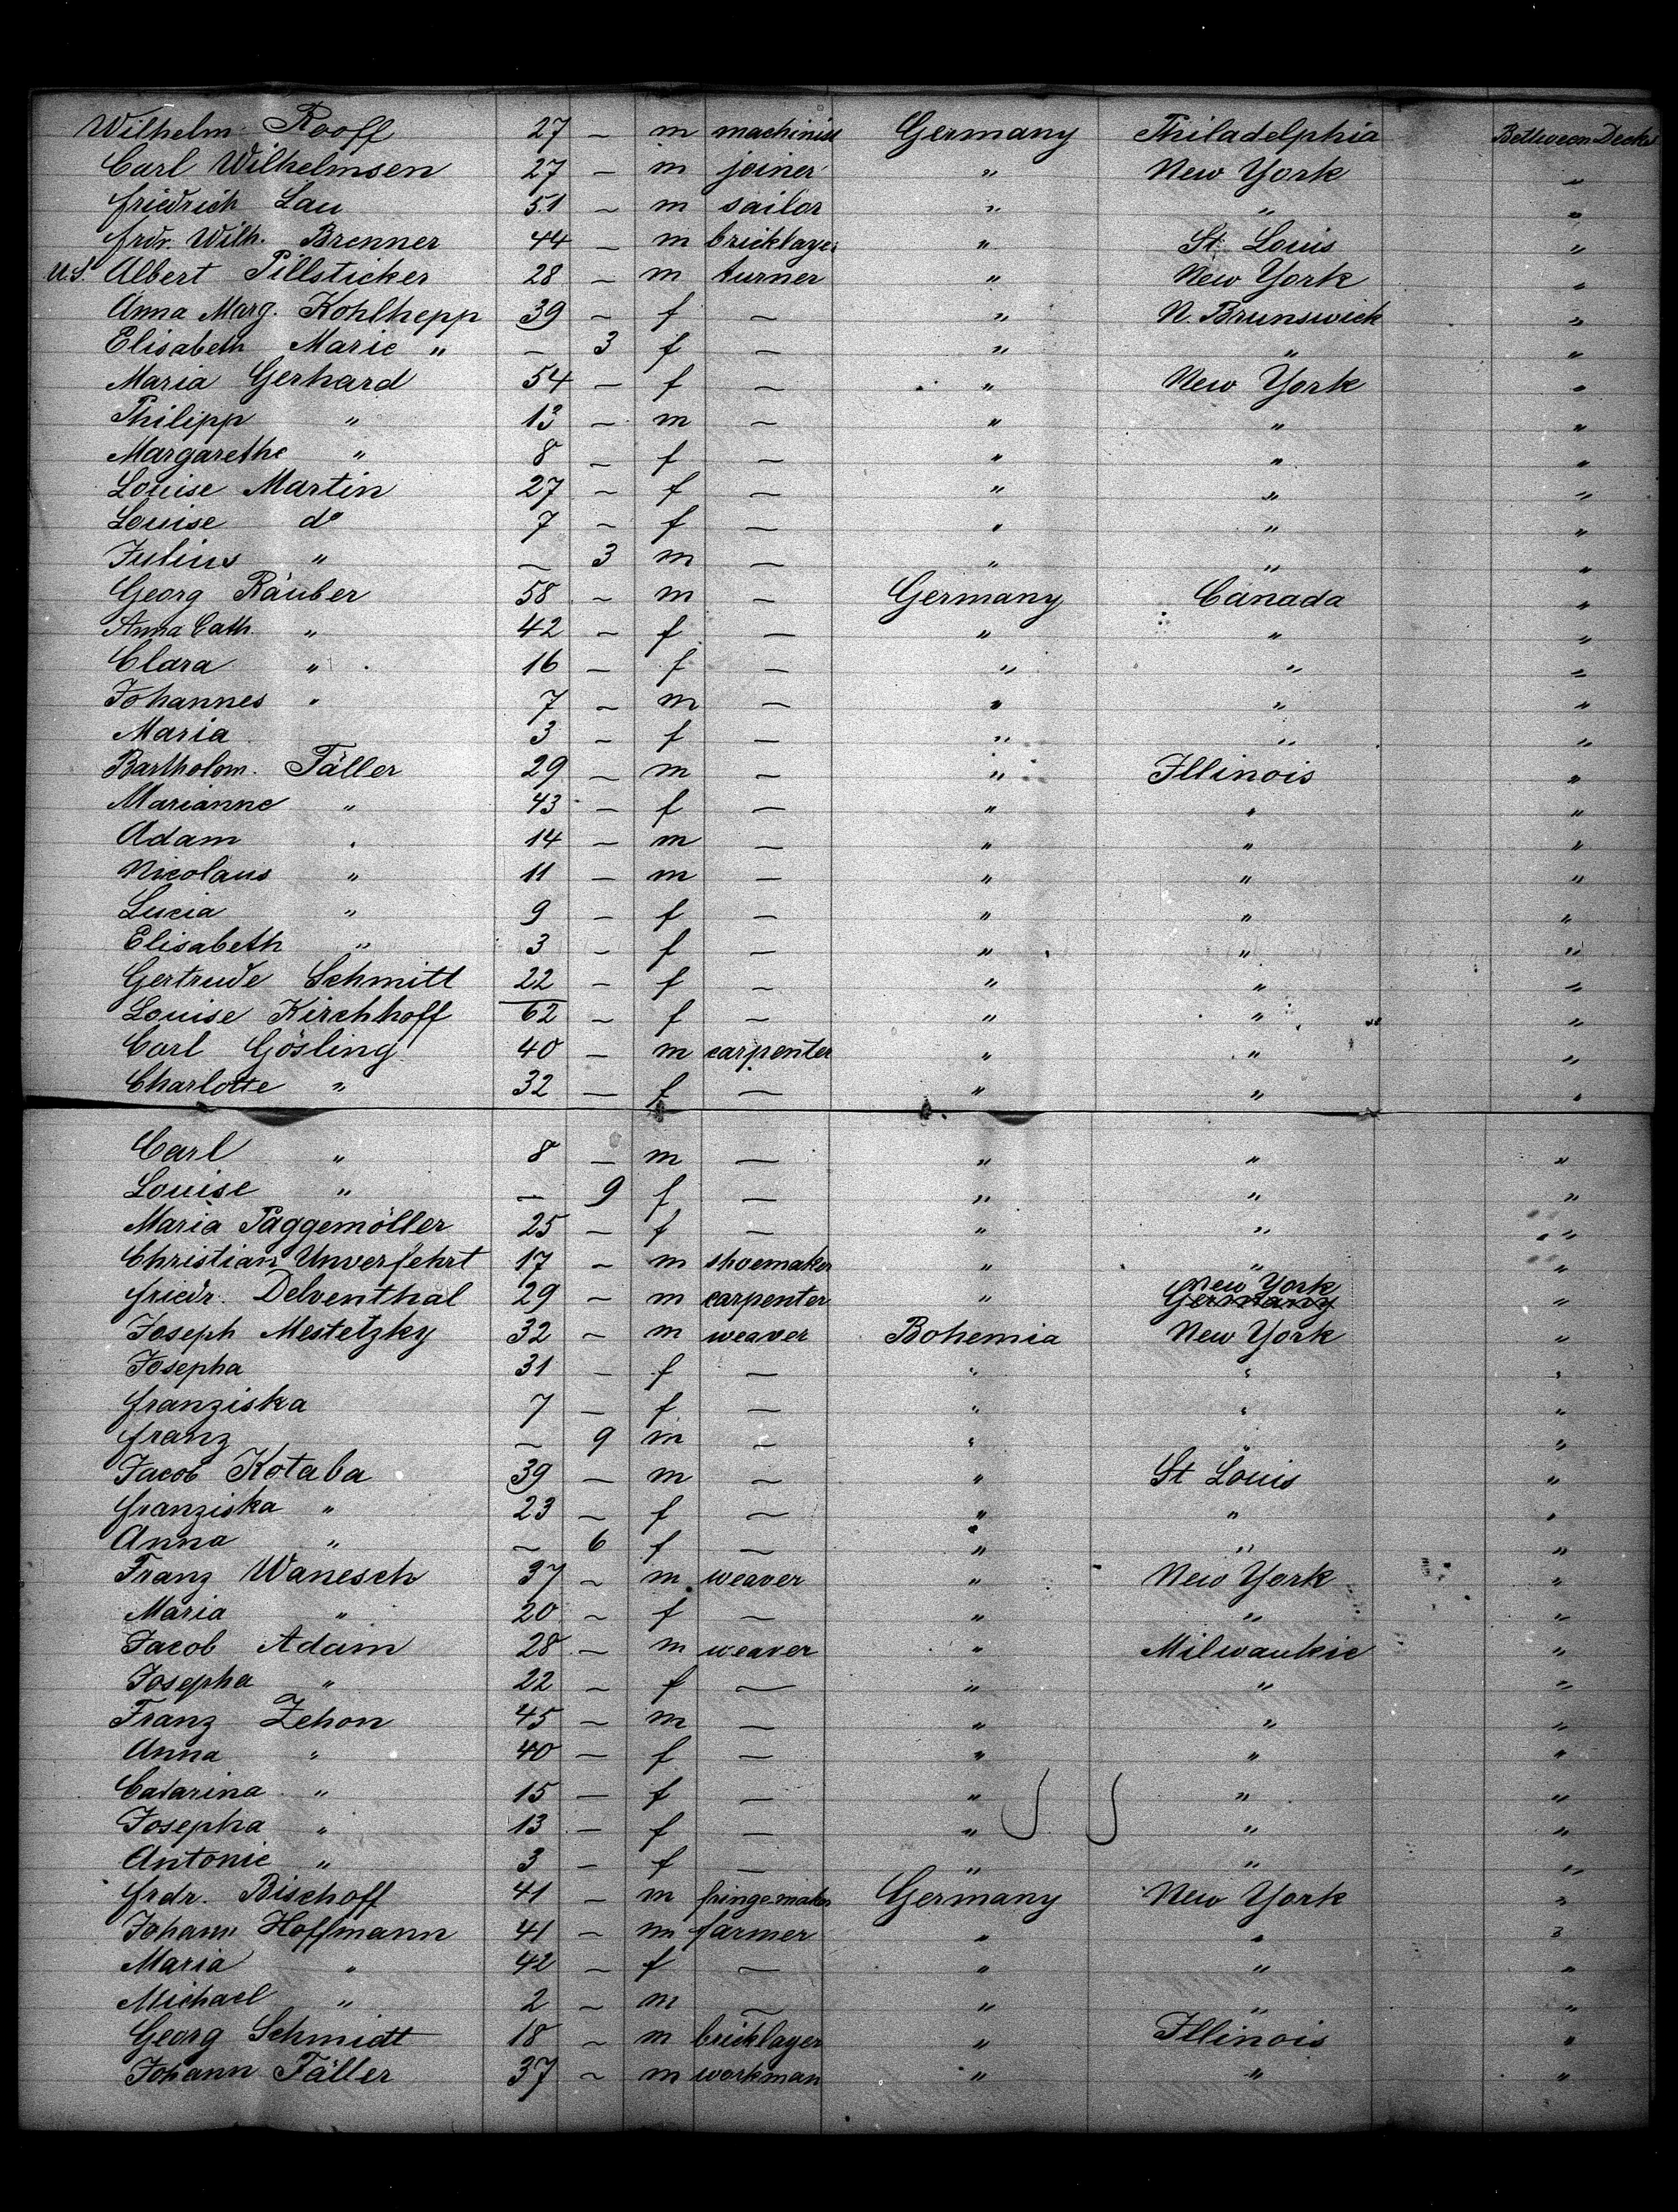 Wilhelm Rooff 27 – m machinist Germany Philadelphia Bettween Decks
Carl Wilhelmsen 27 – m joiner " New York "
Friedrich Lau 51 – m sailor " " "
Frdr. Wilh. Brenner 44 – m bricklayer " St. Louis "
U.S. Albert Pillsticker 28 – m turner " New York "
Anna Marg. Kohlhepp 39 – f – " N. Brunswick "
Elisabeth Marie " – 3 f – " " "
Maria Gerhard 54 – f – " New York "
Philipp " 13 – m – " " "
Margarethe " 8 – f – " " "
Louise Martin 27 – f – " " "
Louise do 7 – f – " " "
Julius " – 3 m – " " "
Georg Räuber 58 – m – Germany Canada "
Anna Cath. " 42 – f – " " "
Clara " 16 – f – " " "
Johannes " 7 – m – " " "
Maria 3 – f – " " "
Bartholom. Fäller 29 – m – " Illinois "
Marianne " 43 – f – " " "
Adam " 14 – m – " " "
Nicolaus " 11 – m – " " "
Lucia " 9 – f – " " "
Elisabeth " 3 – f – " " "
Gertrude Schmitt 22 – f – " " "
Louise Kirchhoff 62 – f – " " "
Carl Gösling 40 – m carpenter " " "
Charlotte " 32 – f – " " "
Carl " 8 – m – " " "
Louise " – 9 f – " " "
Maria Paggemöller 25 – f – " " "
Christian Unverfehrt 17 – m shoemaker " " "
New York
Friedr. Delventhal 29 – m carpenter " Germany "
Joseph Mestetzky 32 – m weaver Bohemia New York "
Josepha 31 – f – " " "
Franziska 7 – f – " " "
Franz – 9 m – " " "
Jacob Kotaba 39 – m – " St Louis "
Franziska " 23 – f – " " "
Anna " – 6 f – " " "
Franz Wanesch 37 – m weaver " New York "
Maria " 20 – f – " " "
Jacob Adam 28 – m weaver " Milwaukie "
Josepha " 22 – f – " " "
Franz Zehon 45 – m – " " "
Anna " 40 – f – " " "
Catarina " 15 – f – " " "
Josepha " 13 – f – " " "
Antonie " 3 – f – " " "
Frdr. Bischoff 41 – m fringemaker Germany New York "
Johann Hoffmann 41 – m farmer " " "
Maria " 42 – f – " " "
Michael " 2 – m – " " "
Georg Schmidt 18 – m bricklayer " Illinois "
Johann Fäller 37 – m workman " " "